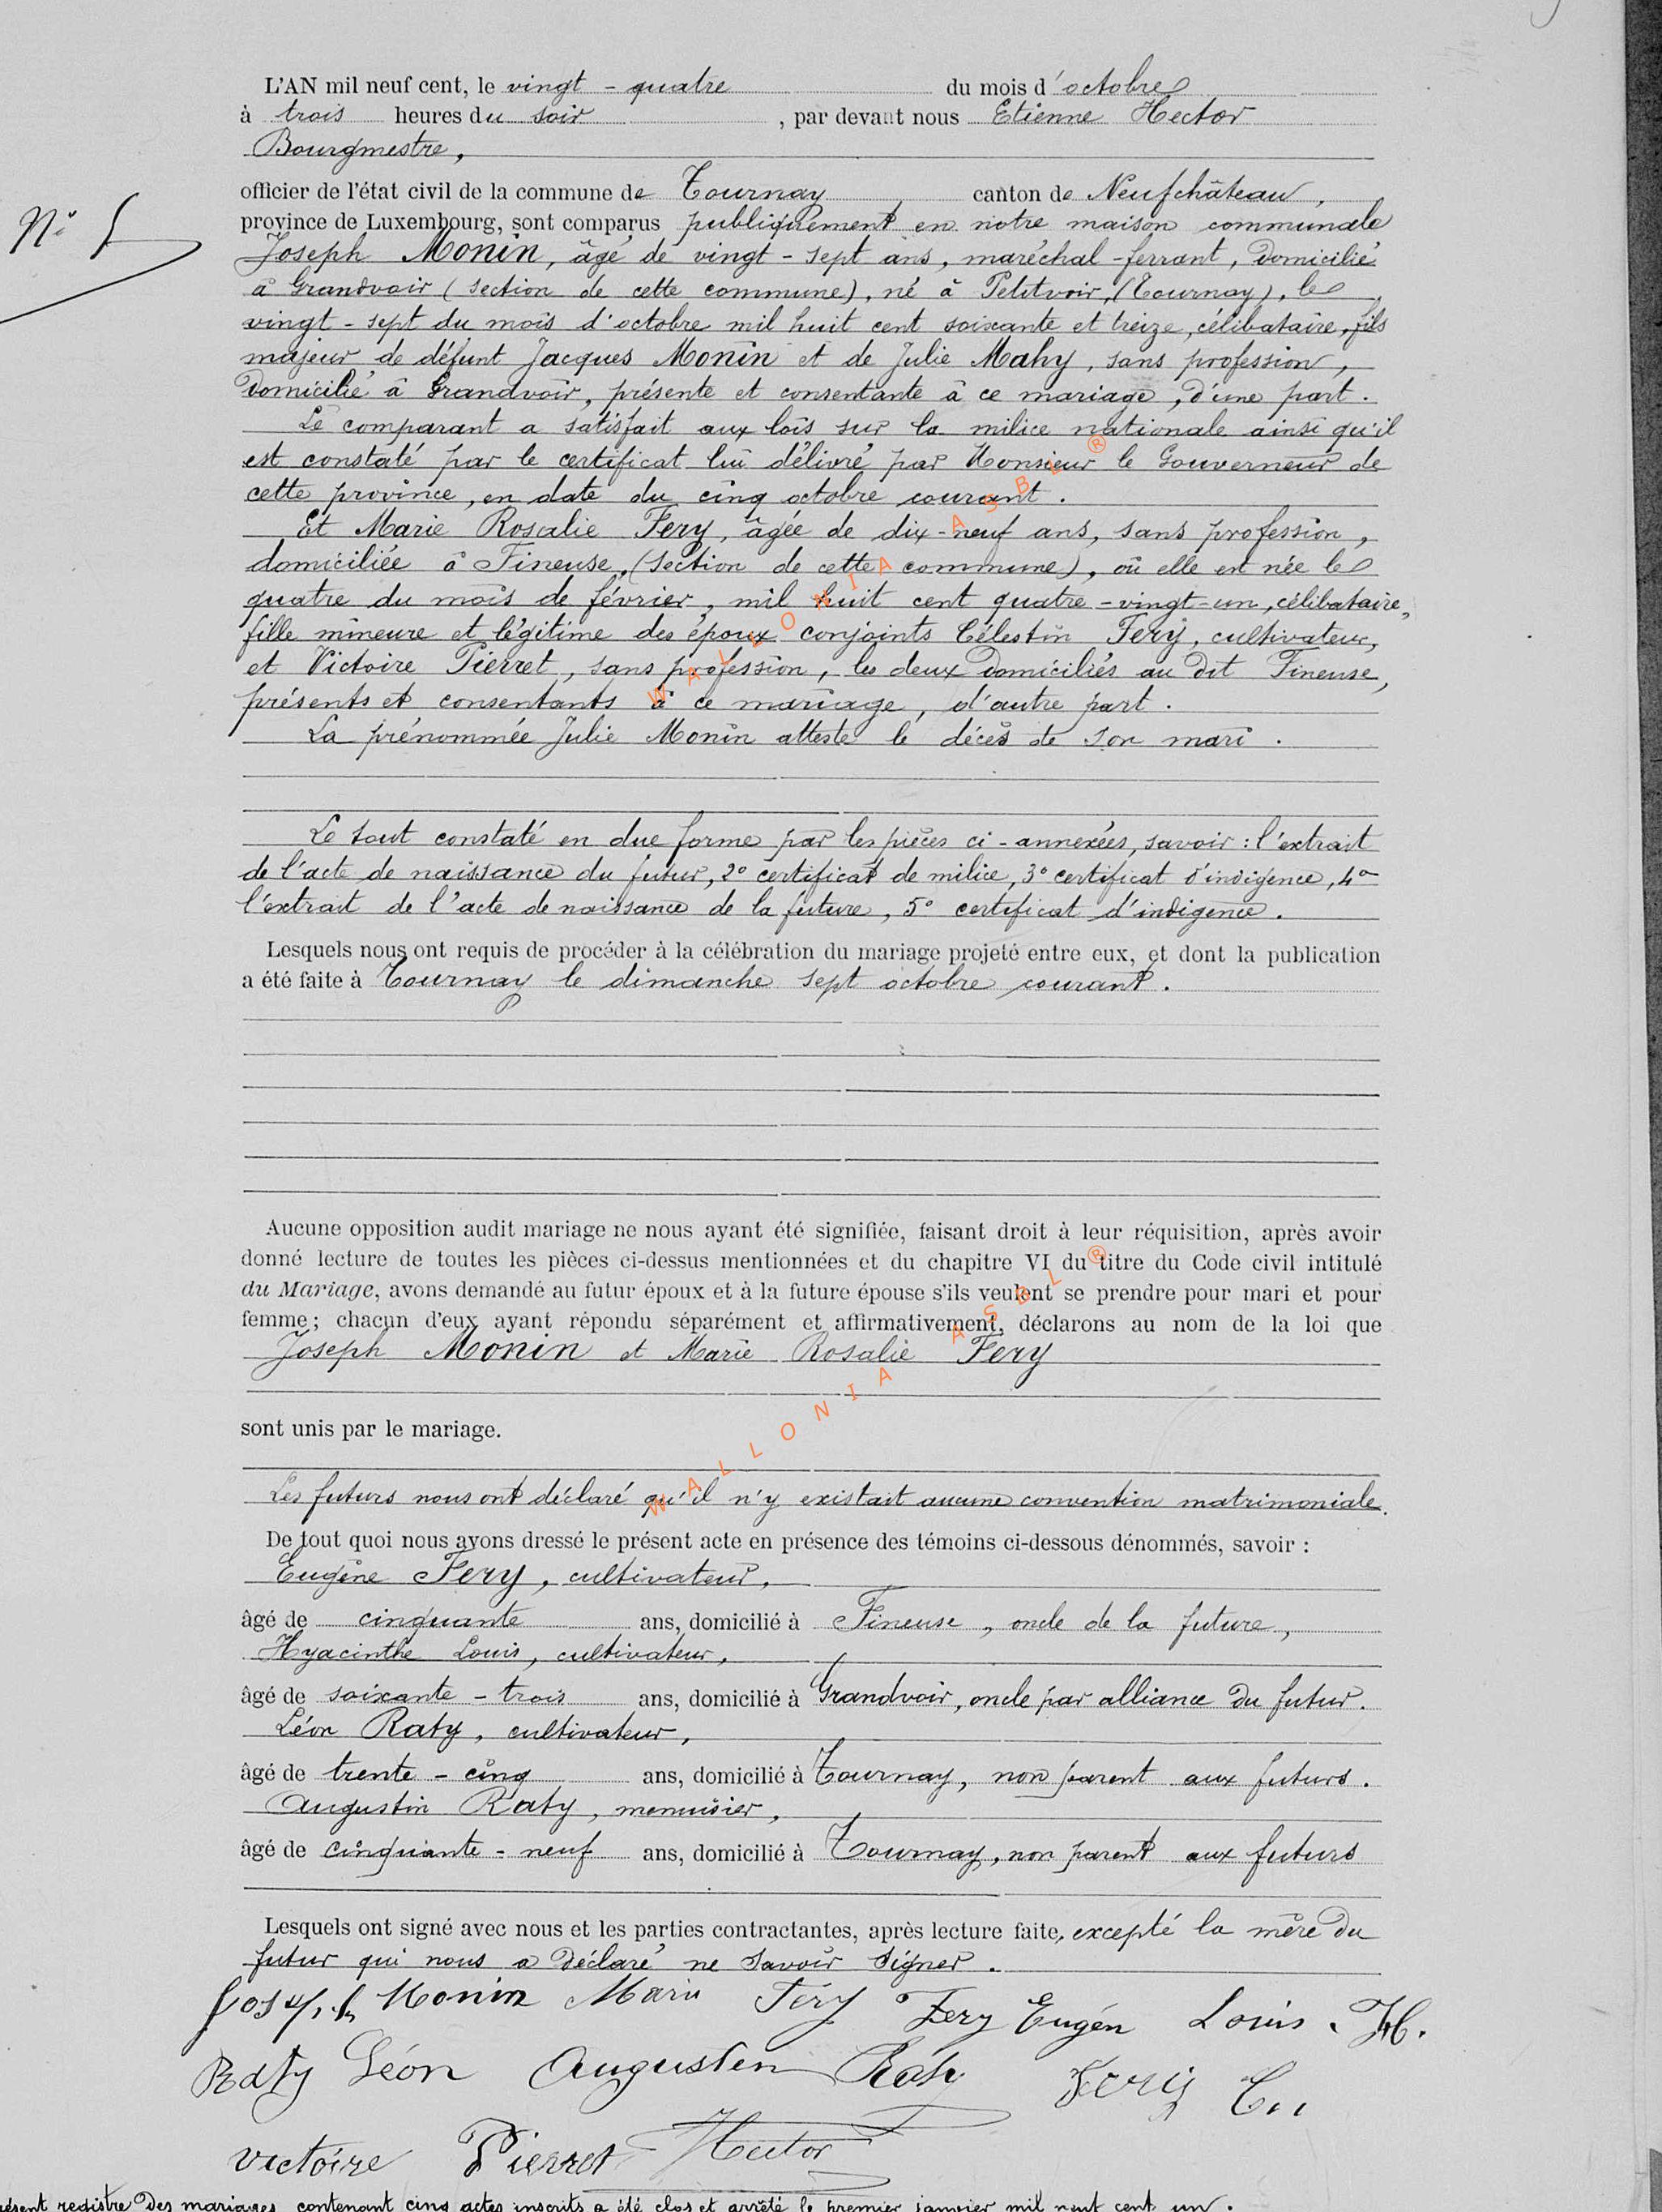 L'AN mil neuf cent, le vingt - quatre du mois d'octobre
à trois heures du soir, par devant nous Etienne Hector
Bourgmestre,
officier de l'état civil de la commune de Tournay canton de Neufchâteau,
province de Luxembourg, sont comparus publiquement en notre maison communale
N° 5
Joseph Monin, âgé de vingt - sept ans, maréchal - ferrant, domicilié
à Grandvoir (section de cette commune), né à Petitvoir, (Tournay), le
vingt - sept du mois d'octobre mil huit cent soixante et treize, célibataire, fils
majeur de défunt Jacques Monin et de Julie Mahy, sans profession,
domicilié à Grandvoir, présente et consentante à ce mariage, d'une part.
Le comparant a satisfait aux lois sur la milice nationale ainsi qu'il
est constaté par le certificat lui délivré par Monsieur le Gouverneur de
cette province, en date du cinq octobre courant.
Et Marie Rosalie Fery, âgée de dix - neuf ans, sans profession,
domiciliée à Fineuse, (section de cette commune), où elle est née le
quatre du mois de février, mil huit cent quatre - vingt - un, célibataire,
fille mineure et légitime des époux conjoints Célestin Fery, cultivateur,
et Victoire Pierret, sans profession, les deux domiciliés au dit Fineuse,
présents et consentants à ce mariage, d'autre part.
La prénommée Julie Monin atteste le décès de son mari.
Le tout constaté en due forme par les pièces ci - annexées, savoir : l'extrait
de l'acte de naissance du futur, 2° certificat de milice, 3° certificat d'indigence, 4°
l'extrait de l'acte de naissance de la future, 5° certificat d'indigence.
Lesquels nous ont requis de procéder à la célébration du mariage projeté entre eux, et dont la publication
a été faite à Tournay le dimanche sept octobre courant.
Aucune opposition audit mariage ne nous ayant été signifiée, faisant droit à leur réquisition, après avoir
donné lecture de toutes les pièces ci-dessus mentionnées et du chapitre VI du titre du Code civil intitulé
du Mariage, avons demandé au futur époux et à la future épouse s'ils veulent se prendre pour mari et pour
femme ; chacun d'eux ayant répondu séparément et affirmativement, déclarons au nom de la loi que
Joseph Monin et Marie Rosalie Fery
sont unis par le mariage.
Les futurs nous ont déclaré qu'il n'y existait aucune convention matrimoniale.
De tout quoi nous avons dressé le présent acte en présence des témoins ci-dessous dénommés, savoir :
Eugène Fery, cultivateur,
âgé de cinquante ans, domicilié à Fineuse, oncle de la future,
Hyacinthe Louis, cultivateur,
âgé de soixante - trois ans, domicilié à Grandvoir, oncle par alliance du futur.
Léon Raty, cultivateur,
âgé de trente - cinq ans, domicilié à Tournay, non parent aux futurs.
Augustin Raty, menuisier,
âgé de cinquante - neuf ans, domicilié à Tournay, non parent aux futurs
Lesquels ont signé avec nous et les parties contractantes, après lecture faite, excepté la mère du
futur qui nous a déclaré ne savoir signer.
Joseph Monin Marie Féry Fery Eugén Louis. H.
Raty Léon Augusten Raty Fery C
Victoire Pierret Hector
résent registre des mariages contenant cinq actes inscrits a été clos et arrêté le premier janvier mil neuf cent un.
WALLONIA ASBL ®
WALLONIA ASBL ®